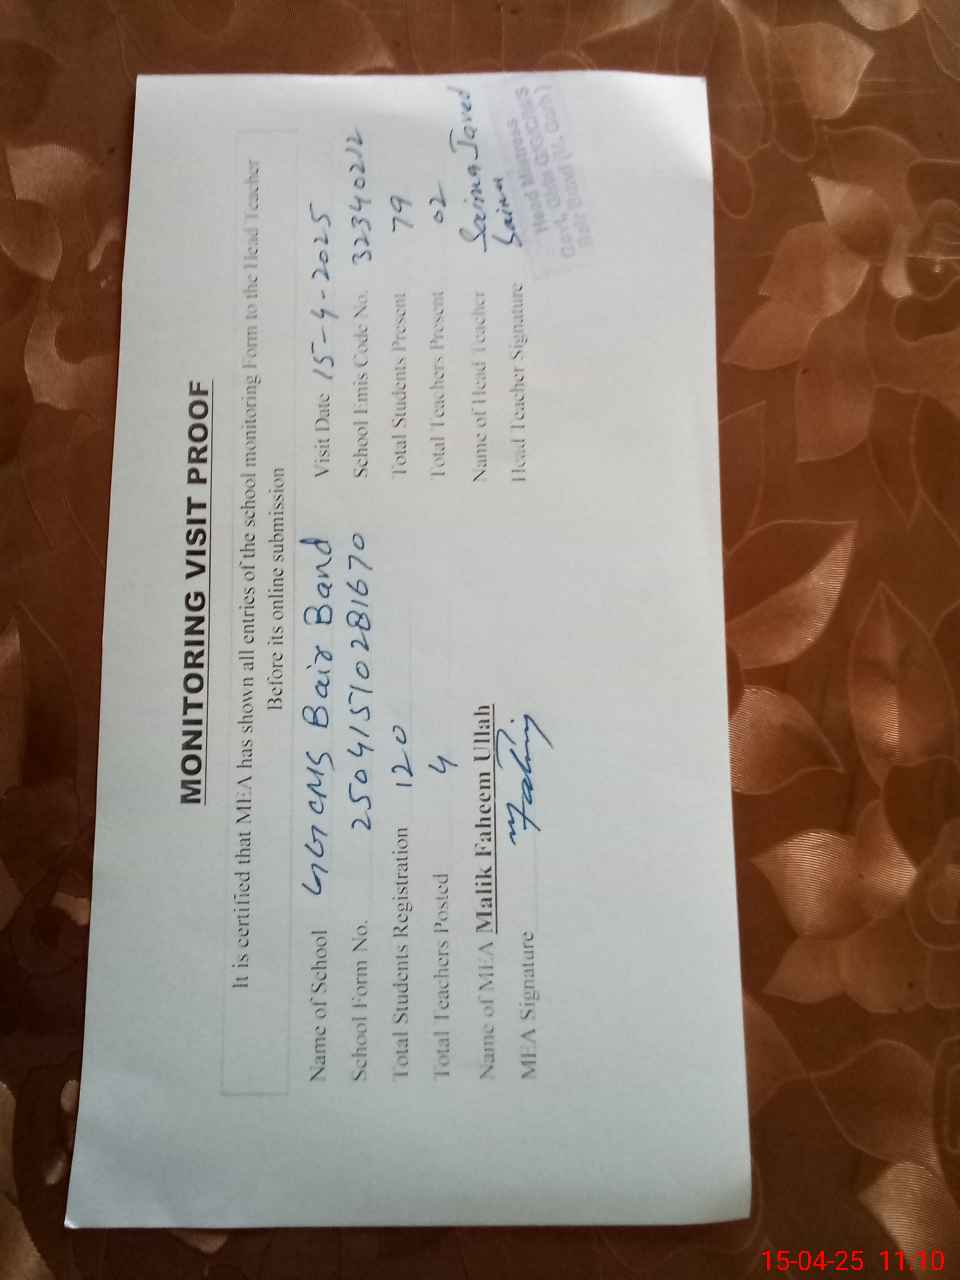 MONITORING VISIT PROOF
It is certified that MEA has shown all entries of the school monitoring Form to the Head Teacher
Before its online submission
Name of School GGCMS Bair Band Visit Date 15-4-2025
School Form No. 25041510281670 School Emis Code No. 32340212
Total Students Registration 120 Total Students Present 79
Total Teachers Posted 4 Total Teachers Present 02
Name of MEA Malik Faheem Ullah Name of Head Teacher Saima Javed
MEA Signature Head Teacher Signature Saima
Head Mistress
Bait Band
15-04-25 11:10